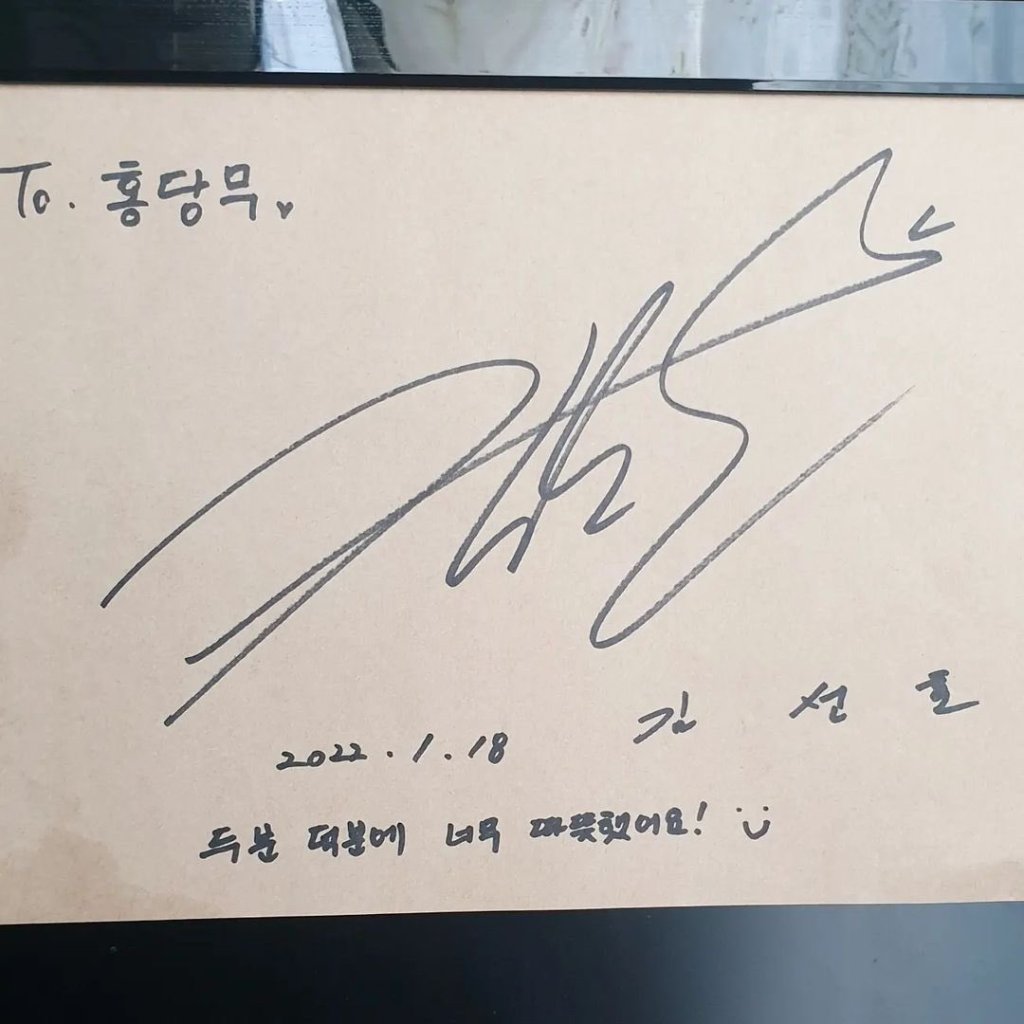 To. 홍당무♥
김 선호
2022. 1. 18
두분 덕분에 너무 따뜻했어요!